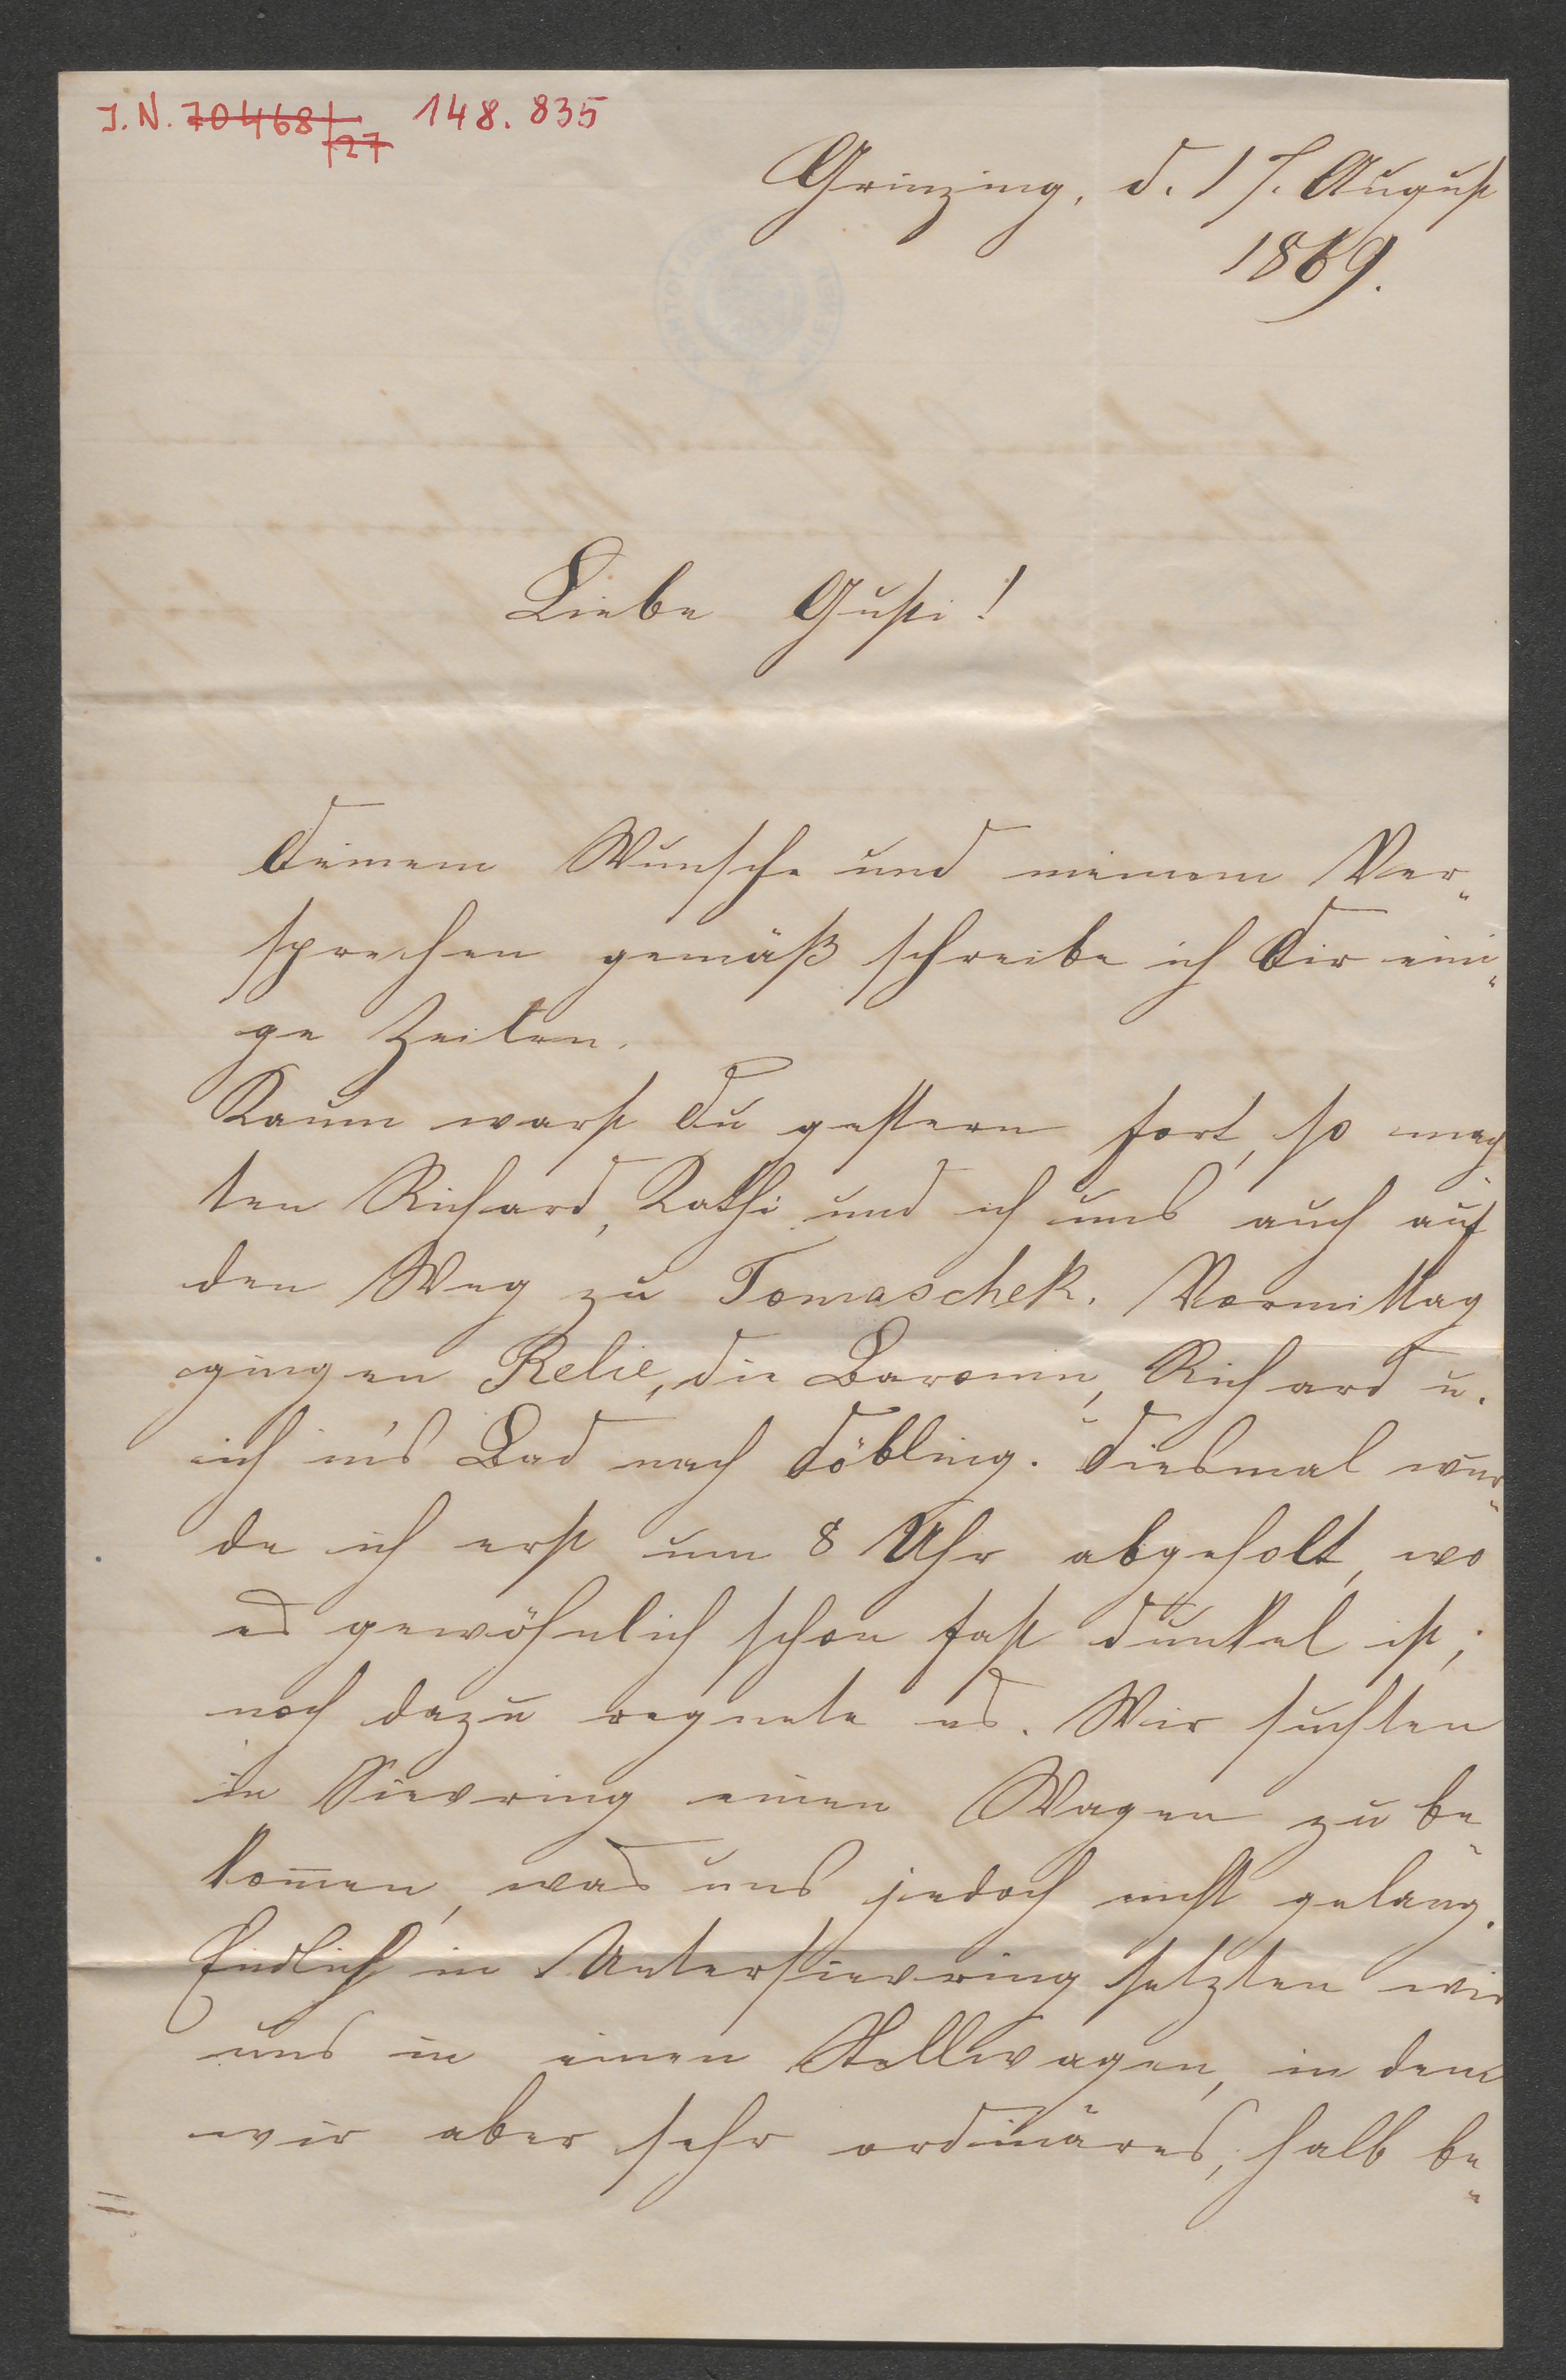 J. N. 70468/27 148.835
Grinzing, d. 17. August
1869.
Liebe Gusti!
Deinem Wunsche und meinem Ver-
sprechen gemäß schreibe ich Dir eini-
ge Zeilen.
Kaum warst Du gestern fort, so mach-
ten Richard, Kathi und ich uns auch auf
den Weg zu Tomaschek. Vormittag
gingen Relie, die Baronin, Richard u.
ich in's Bad nach Döbling. Diesmal wur-
de ich erst um 8 Uhr abgeholt, wo
es gewöhnlich schon fast dunkel ist;
noch dazu regnete es. Wir suchten
in Sievring einen Wagen zu be-
kom̅en, was uns jedoch nicht gelang.
Endlich in Untersievring setzten wir
uns in einen Stellwagen, in dem
wir aber sehr ordinäres, halb be-